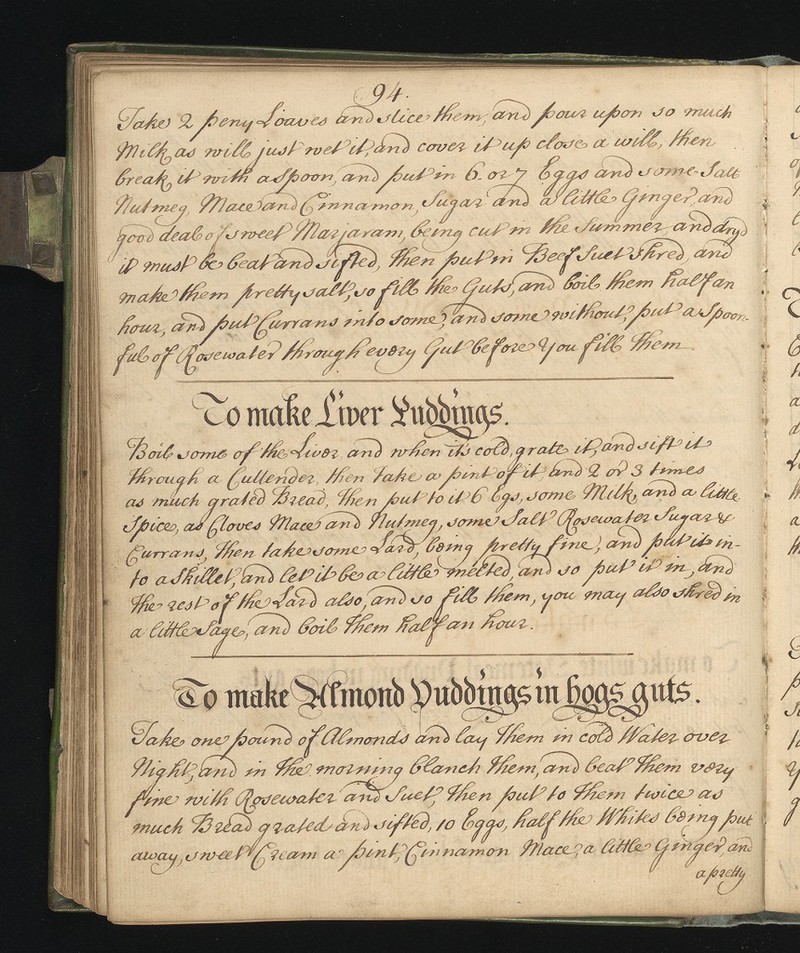 94.
Take 2 peny Loaves and slice them, and pour upon so much
Milk, as will just wet it, and cover it up close a will, then
break it with a spoon, and put in 6. or 7 Eggs and some Salt
Nutmeg, Mace and Cinnamon, Sugar and a little Ginger, and
good deal of sweet Marjaram, being cut in the Summer, and dry'd
it must be beat and sifted, then put in Beef Suet shred, and
make them pretty salt, so fill the Guts, and boil them half an
hour, and put Currans into some, and some without, put a Spoon-
ful of Rosewater through every Gut before you fill them.
To make Liver Puddings.
Boil some of the Liver and when it's cold, grate it, and sift it
through a Cullender, then take a pint of it and 2 or 3 times
as much grated Bread, then put to it 6 Egs, some Milk, and a little
Spice, as Cloves Mace and Nutmeg, some Salt Rosewater Sugar &
Currans, then take some Lard, being pretty fine, and put it in-
to a Skillet, and let it be a little melted, and so put it in, and
the rest of the Lard also, and so fill them, you may also shred in
a little Sage, and boil them half an hour.
To make Almond Puddings in hogs guts.
Take one pound of Almonds and lay them in cold Water over
Night, and in the morning blanch them, and beat them very
fine with Rosewater and Suet, then put to them twice as
much Bread grated and sifted, 10 Eggs, half the Whites being put
away, sweet Cream a pint, Cinnamon Mace, a little Ginger, and
a pretty